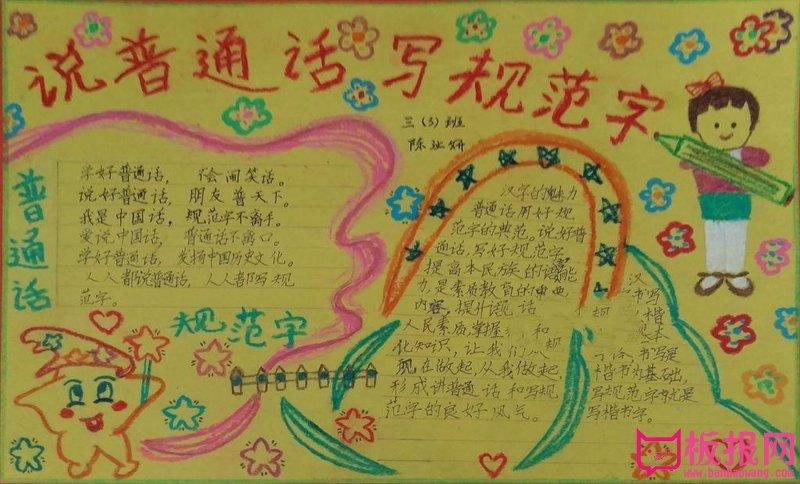 说普通话写规范字
三(3)班
普通话
学好普通话，
说好普通话，朋友普天下。
我是中国话，规范字不离手。
爱说中国话，普通话不离口。
学好普通话，发扬中国历史文化。
人人都说普通话，人人都写规
范字。
规范字
汉字的魅力
普通话用好规
范字的典范，说好普
通话，写好规范字，
提高本民族的
力，是素质教育的
内容，提升
人民素质掌握
化知识，让我们从
现在做起，从我做起
形成讲普通话和写规
范字的良好风气。
汉
书写
楷
书写是
楷书为基础，
写规范字就是
写楷书字。
板报网
www.banbaowang.com